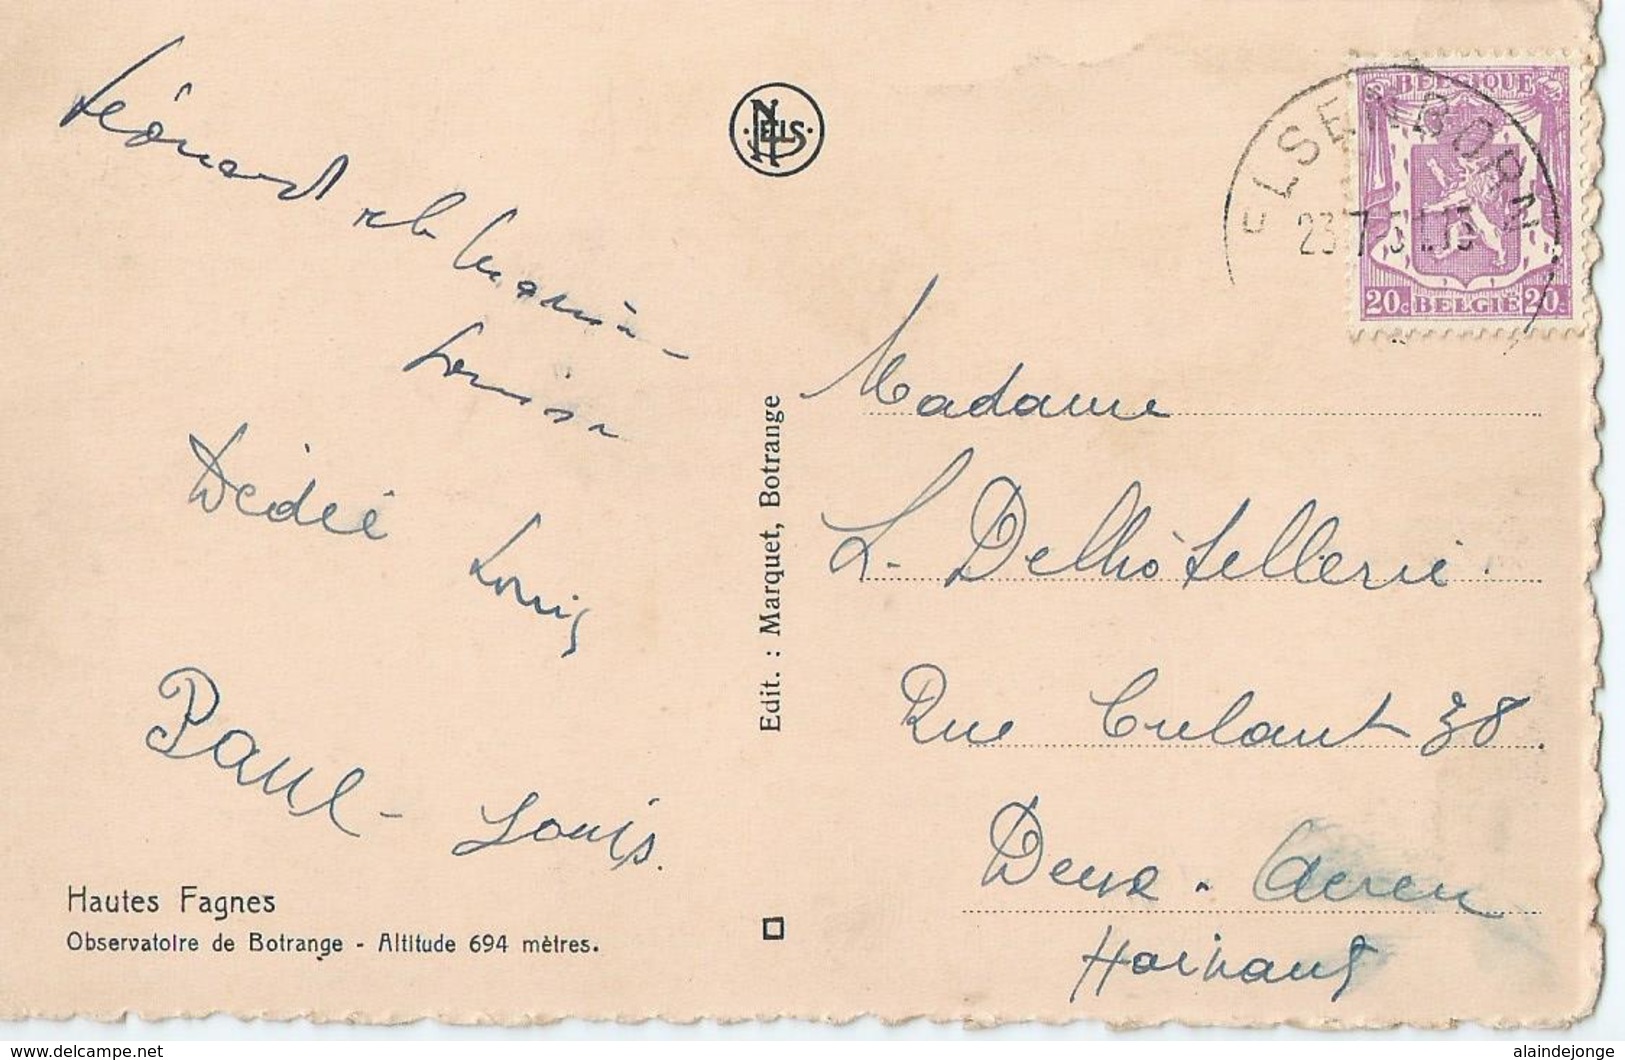 Léonard et Maria
Louisa
Dédéé
Louis
Paul - Louis.
Hautes Fagnes
Observatoire de Botrange - Altitude 694 mètres.
NELS
Edit. : Marquet, Botrange
ELSENBORN
23-7-51.15
BELGIQUE
20c BELGIË 20c
Madame
L. Delhôtellerie
Rue Culant 38.
Deux - Acren
Hainaut
delcampe.net
alaindejonge